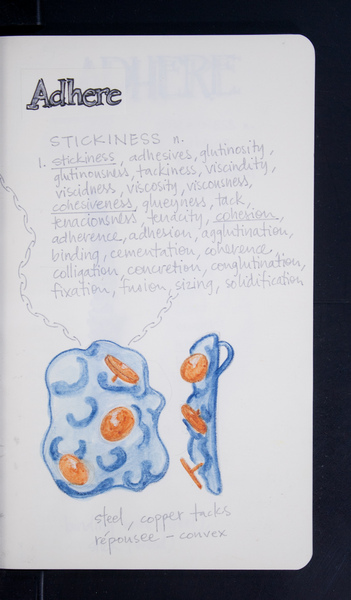 Adhere
STICKINESS n.
1. stickiness, adhesives, glutinosity,
glutinousness, tackiness, viscindity,
viscidness, viscosity, viscousness,
cohesiveness, glueyness, tack,
tenaciousness, tenacity, cohesion,
adherence, adhesion, agglutination,
binding, cementation, coherence,
colligation, concretion, conglutination,
fixation, fusion, sizing, solidification
steel, copper tacks
répousee - convex